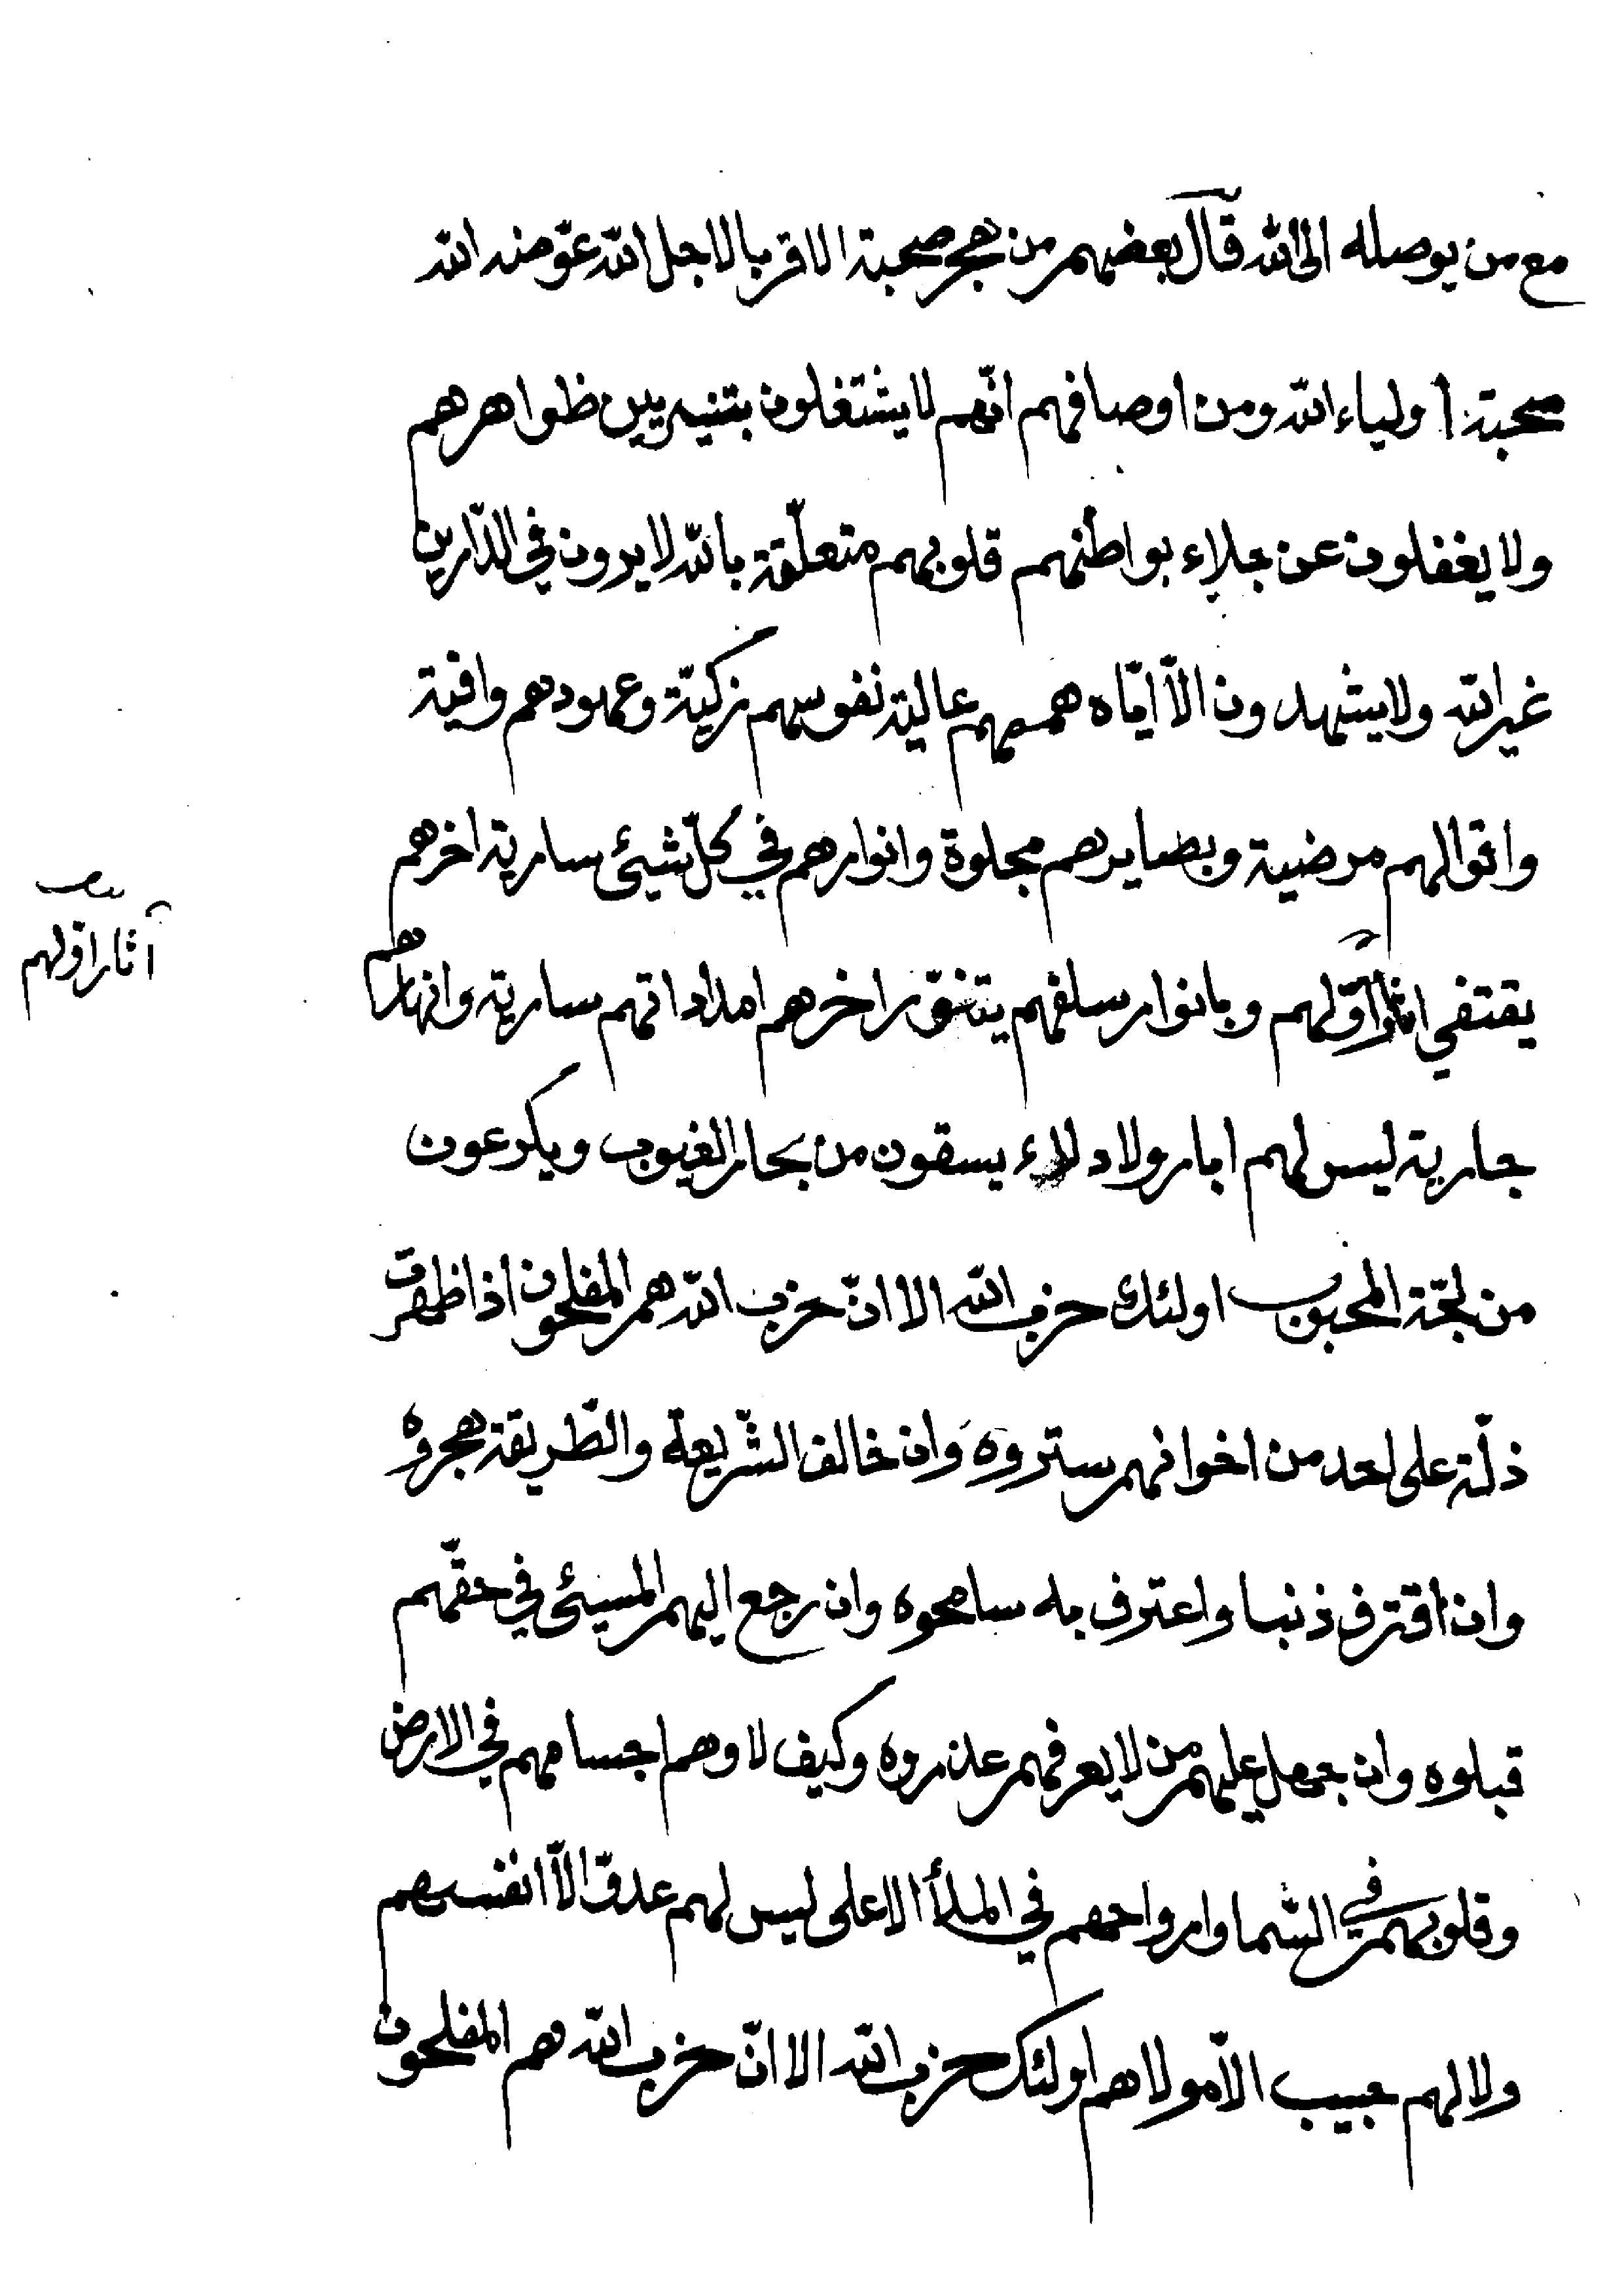 مع من يوصله الى الله قال بعضهم من هجر صحبة الاقربا لاجل الله عوّضه الله
صحبة اولياء الله ومن اوصافهم انّهم لا يشتغلون بتزيين ظواهرهم
ولا يغفلون عن جلاء بواطنهم قلوبهم متعلّقة بالله لا يرون في الدّارين
غير الله ولا يشهدون الّا ايّاه هممهم عالية نفوسهم زكيّة وعهودهم وافية
واقوالهم مرضية وبصايرهم مجلوة وانوارهم في كلّ شيئ سارية اخرهم
يقتفي اثار اوّلهم وبانوار سلفهم يتنوّر اخرهم امداداتهم سارية وانهارهم
آثار اولهم
جارية ليس لهم ابار ولا دلاء يسقون من بحار الغيوب ويكرعون
من لجّة المحبوب اولئك حزب الله الا انّ حزب الله هم المفلحون اذا ظهرت
ذلّة على احد من اخوانهم ستروه وان خالف الشّريعة والطّريقة هجروه
وان اقترف ذنبا واعترف به سامحوه وان رجع اليهم المسيئ في حقّهم
قبلوه وان جهل عليهم من لا يعرفهم عذروه وكيف لا وهم اجسامهم في الارض
وقلوبهم في السّما وارواحهم في الملأ الاعلى ليس لهم عدوّ الّا انفسهم
ولا لهم حبيب الّا مولاهم اولئك حزب الله الا انّ حزب الله هم المفلحون